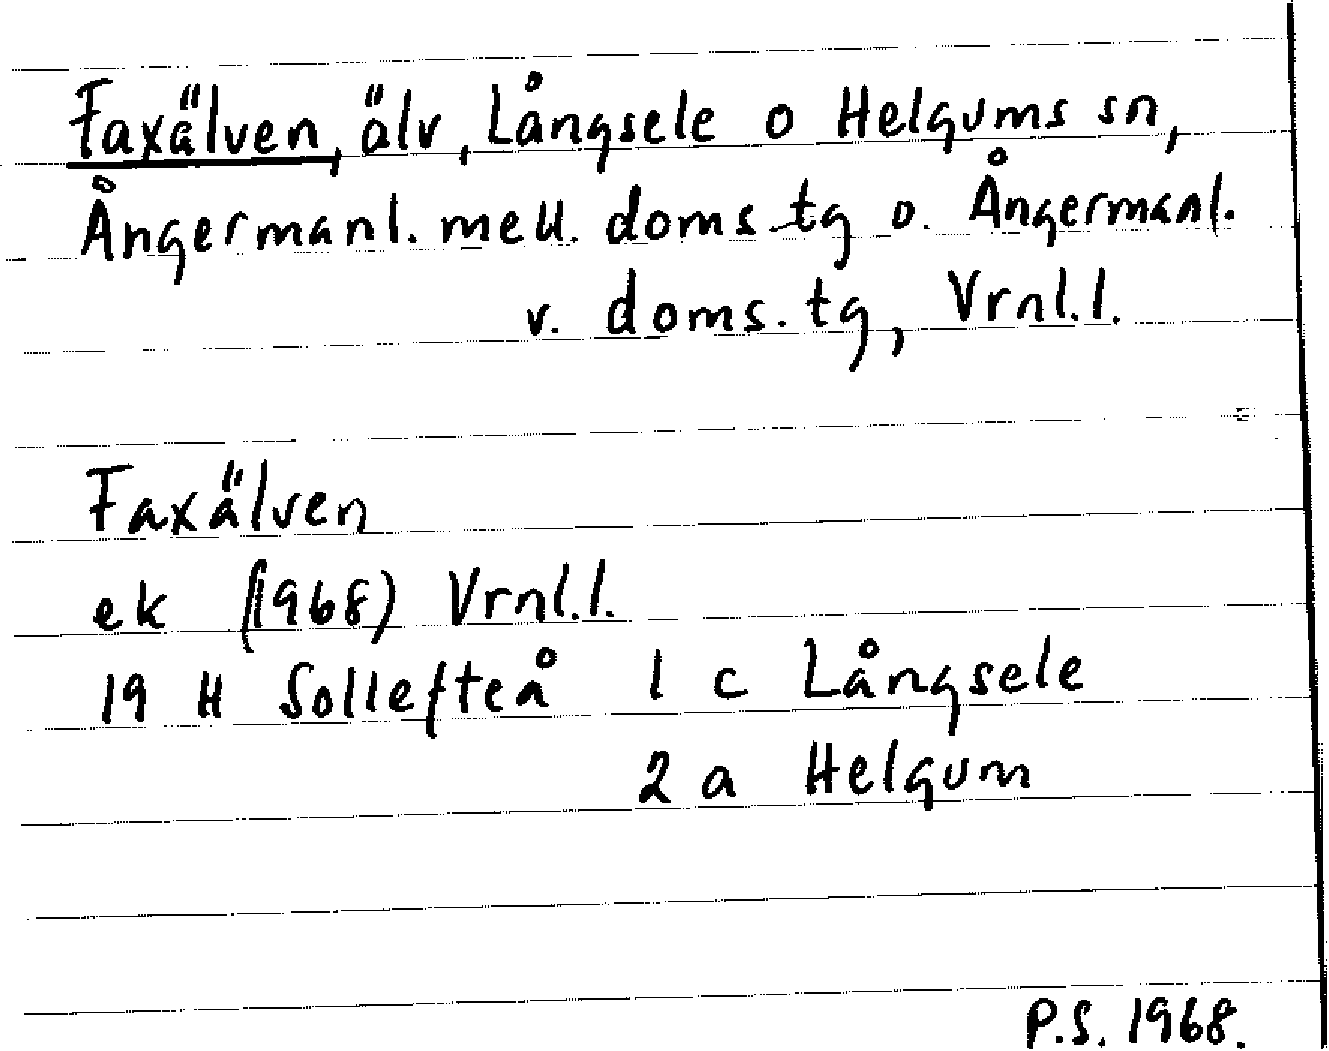 Faxälven, älv, Långsele o Helgums sn,
Ångermanl. mell. doms tg o. Ångermanl.
v. doms. tg, Vrnl.l.
Faxälven
ek (1968) Vrnl.l.
19 H Sollefteå 1 c Långsele
2 a Helgum
P.S. 1968.